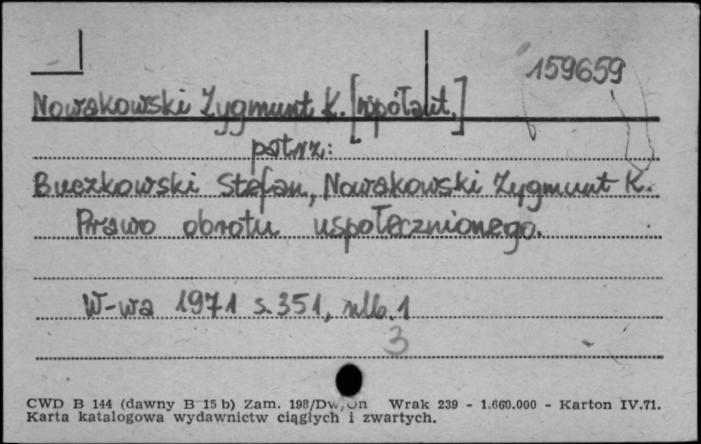 159659
Nowakowski Zygmunt K. [współaut.]
patrz:
Buczkowski Stefan, Nowakowski Zygmunt K.
Prawo obrotu uspołecznionego.
W-wa 1971 s. 351, nlb. 1
3
CWD B 144 (dawny B 15 b) Zam. 198/Dw/On Wrak 239 - 1.660.000 - Karton IV.71.
Karta katalogowa wydawnictw ciągłych i zwartych.